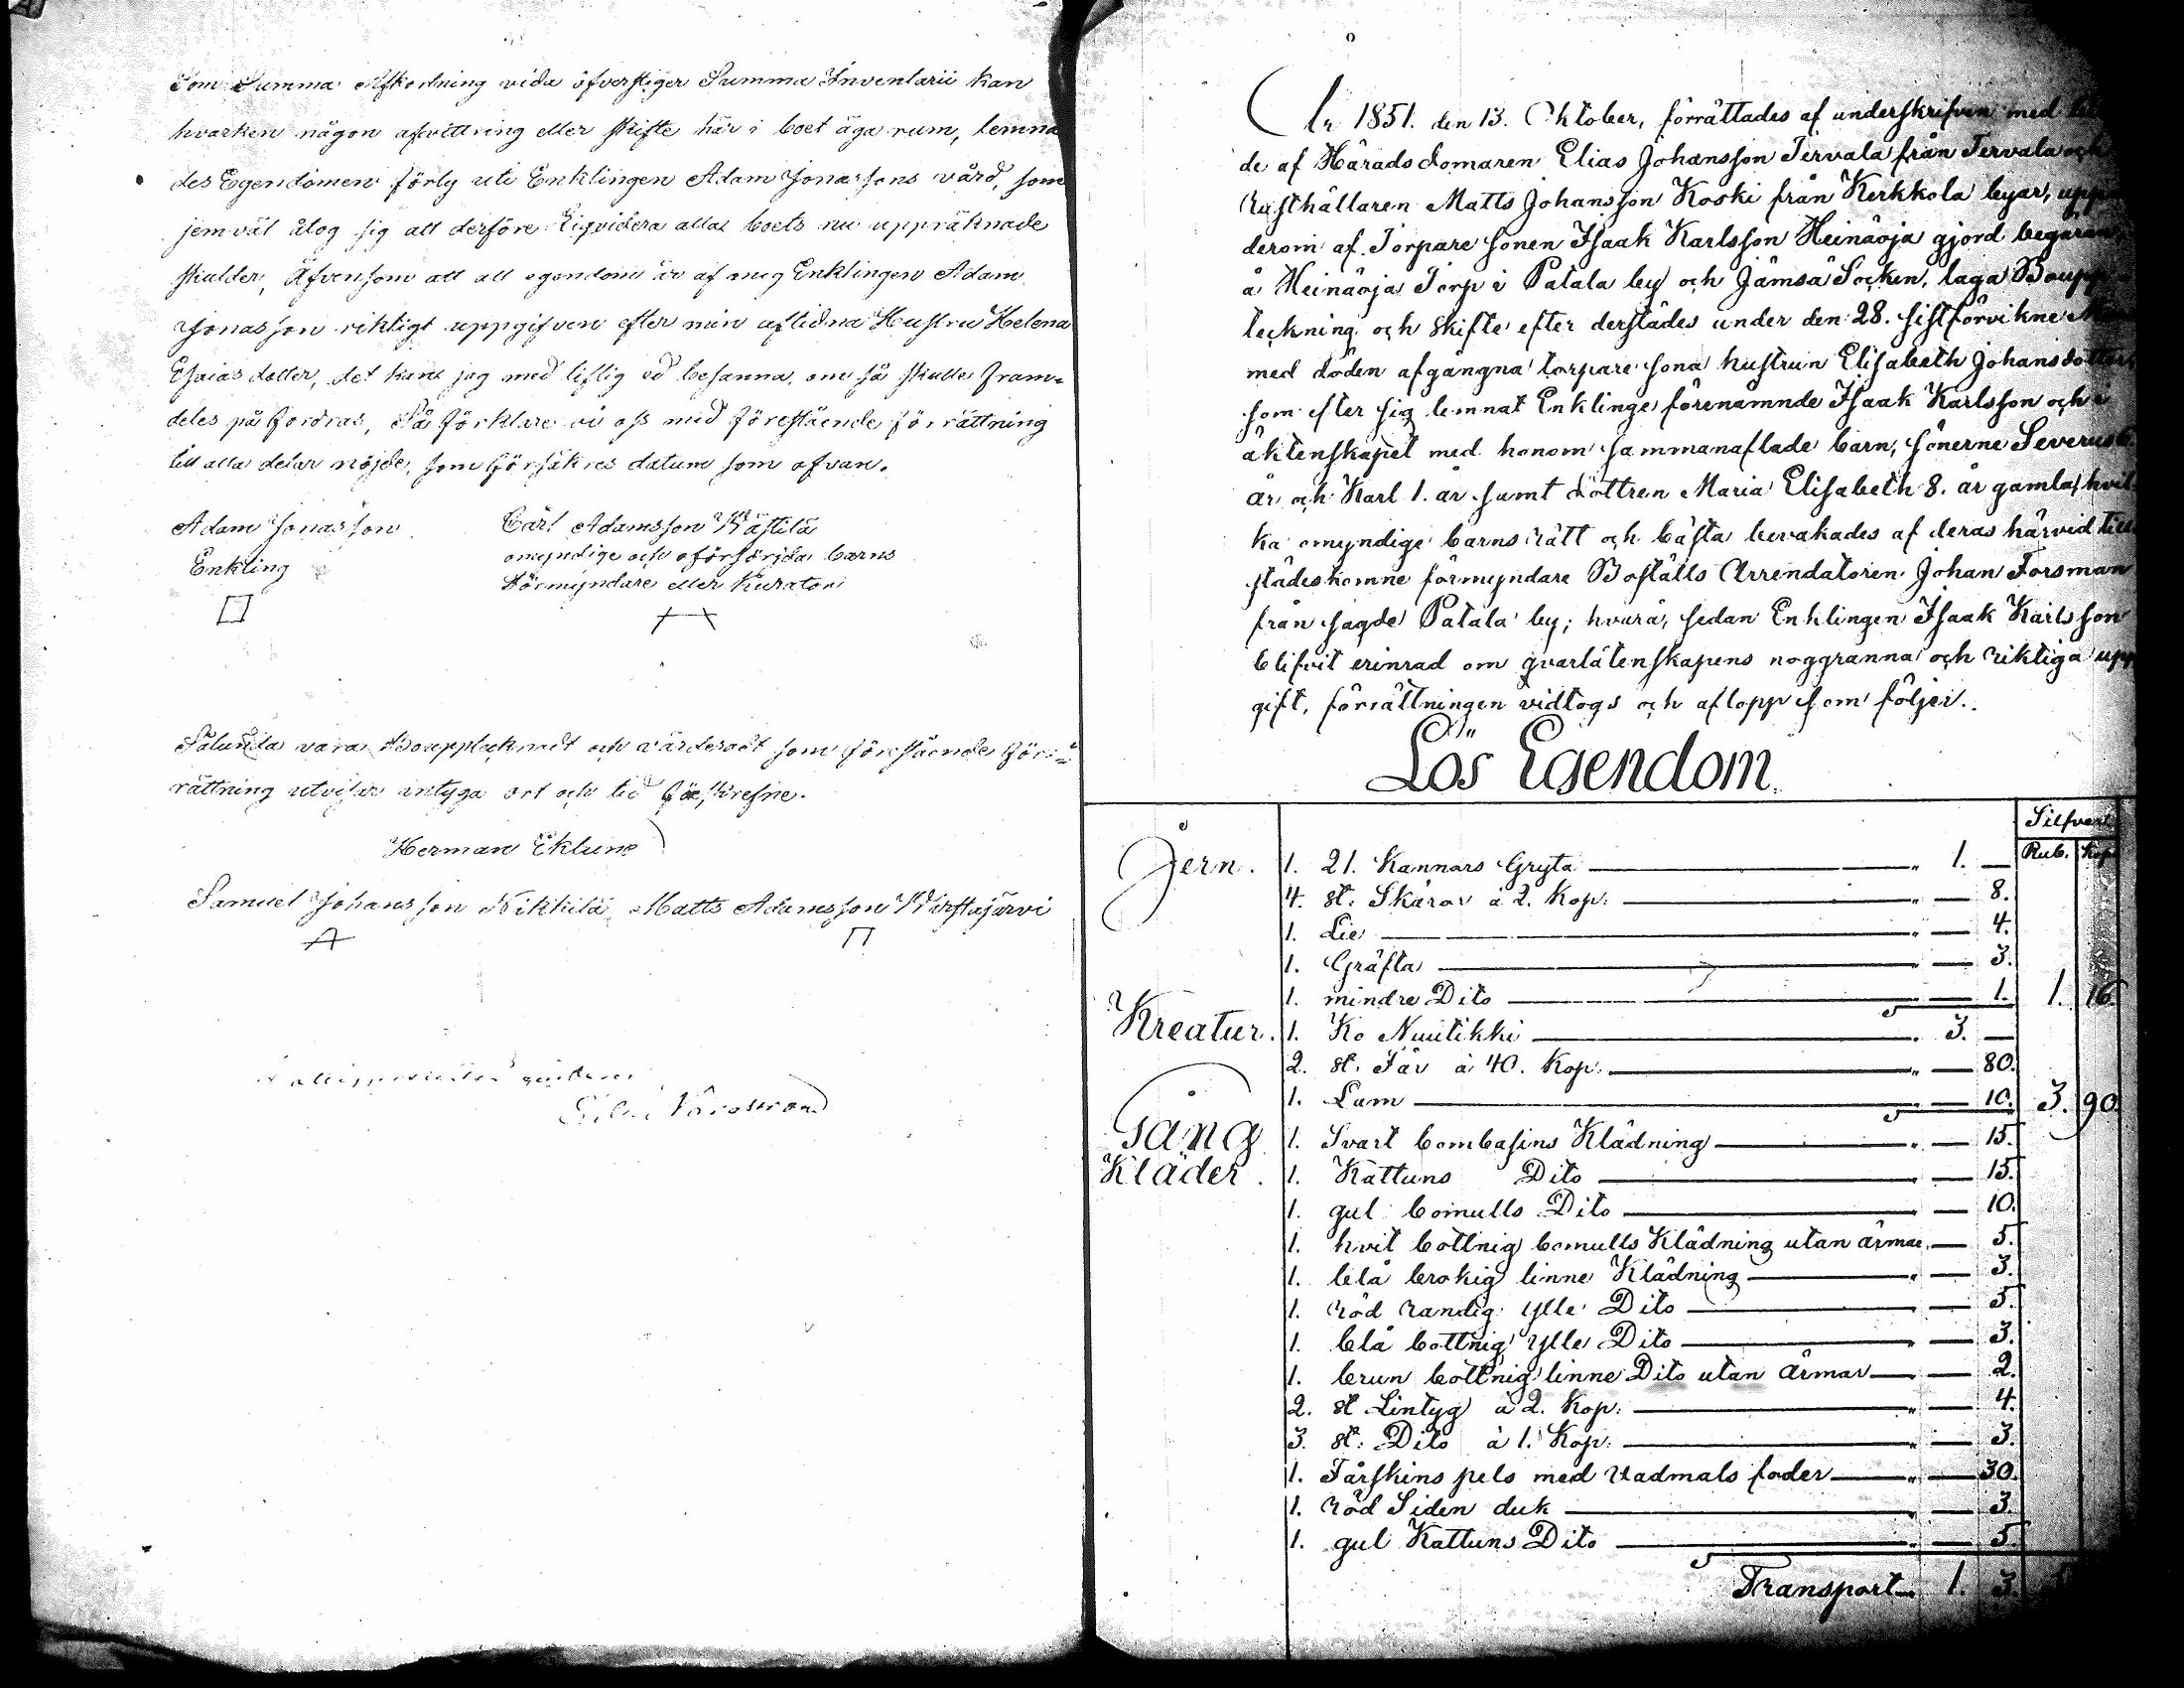 Som Summa Afkortning vida öfverstiger Summa Inventarii kan
hvarken någon afvittring eller skifte här i boet äga rum, lemna
des Egendomen förty uti Enklingen Adam Jonassons vård, som
jemväl åtog sig att derföre Liqvidera alla boets nu uppräknade
skulder, Äfvensom att all egendom är af mig Enklingen Adam
Jonasson riktigt uppgifven efter min aflidna Hustru Helena
Esaiasdotter, det kan jag med liflig ed besanna, om så skulle fram-
deles på fordras, Så förklare vi oss med förestående förrättning
till alla delar nöjde, som försäkres datum som ofvan.
Adam Jonasson
Enkling
Carl Adamsson Wästilä
omyndige och oförsörjda barns
Förmyndare eller Kurator
Sålunda vara Boupptecknadt och värderadt som förestående för-
rättning utvisar intyga ort och tid förskrefne.
Herman Eklund
Samuel Johansson Nikkilä Matts Adamsson Wirstajärvi
År 1851. den 13. Oktober, förrättades af underskrifven med
de af Häradsdomaren Elias Johansson Tervala från Tervala och
Rusthållaren Matts Johansson Koski från Kerkkola byar, uppå
derom af Torpare sonen Isaak Karlsson Heinäoja gjord begäran,
å Heinäoja Torp i Patala by och Jämsä Socken, laga Boupp-
teckning och skifte efter derstädes under den 28. sistförvikne
med döden afgångna torpare sona hustrun Elisabeth Johansdotter,
som efter sig lemnat Enklinge förenämnde Isaak Karlsson och i
äktenskapet med honom sammanaflade barn, sönerne Severus 6.
år och Karl 1. år samt dottren Maria Elisabeth 8. år gamla, hvil-
ka omyndige barns rätt och bästa bevakades af deras härvid till
städeskomne förmyndare Boställs Arrendatoren Johan Forsman
från sagde Patala by; hvarå, sedan Enklingen Isaak Karlsson
blifvit erinrad om qvarlåtenskapens noggranna och riktiga upp
gift, förrättningen vidtogs och aflopp som följer.
Lös Egendom.
Silfver
Rub. Kop
Jern. 1. 21. Kannors Gryta " 1. —
4. st: Skäror à 2. Kop: " — 8.
1. Lie " — 4.
1. Gräfta " — 3.
1. mindre Dito " — 1. 1. 16.
Kreatur. 1. Ko Nuutikki " 3. —
2. st. Får à 40. Kop: " — 80.
1. Lam " — 10. 3. 90.
Gång 1. Svart bombasins Klädning " — 15.
Kläder. 1. Kattuns Dito " — 15.
1. gul bomulls Dito " — 10.
1. hvit bottnig bomulls Klädning utan ärmar — 5.
1. blå brokig linne Klädning " — 3.
1. röd randig ylle Dito " — 5.
1. blå bottnig ylle Dito " — 3.
1. brun bottnig linne Dito utan ärmar " — 2.
2. st Lintyg à 2. Kop: " — 4.
3. st: Dito à 1. Kop: " — 3.
1. Fårskins pels med vadmals foder " — 30.
1. röd Siden duk " — 3.
1. gul Kattuns Dito " — 5.
Transport 1. 3.